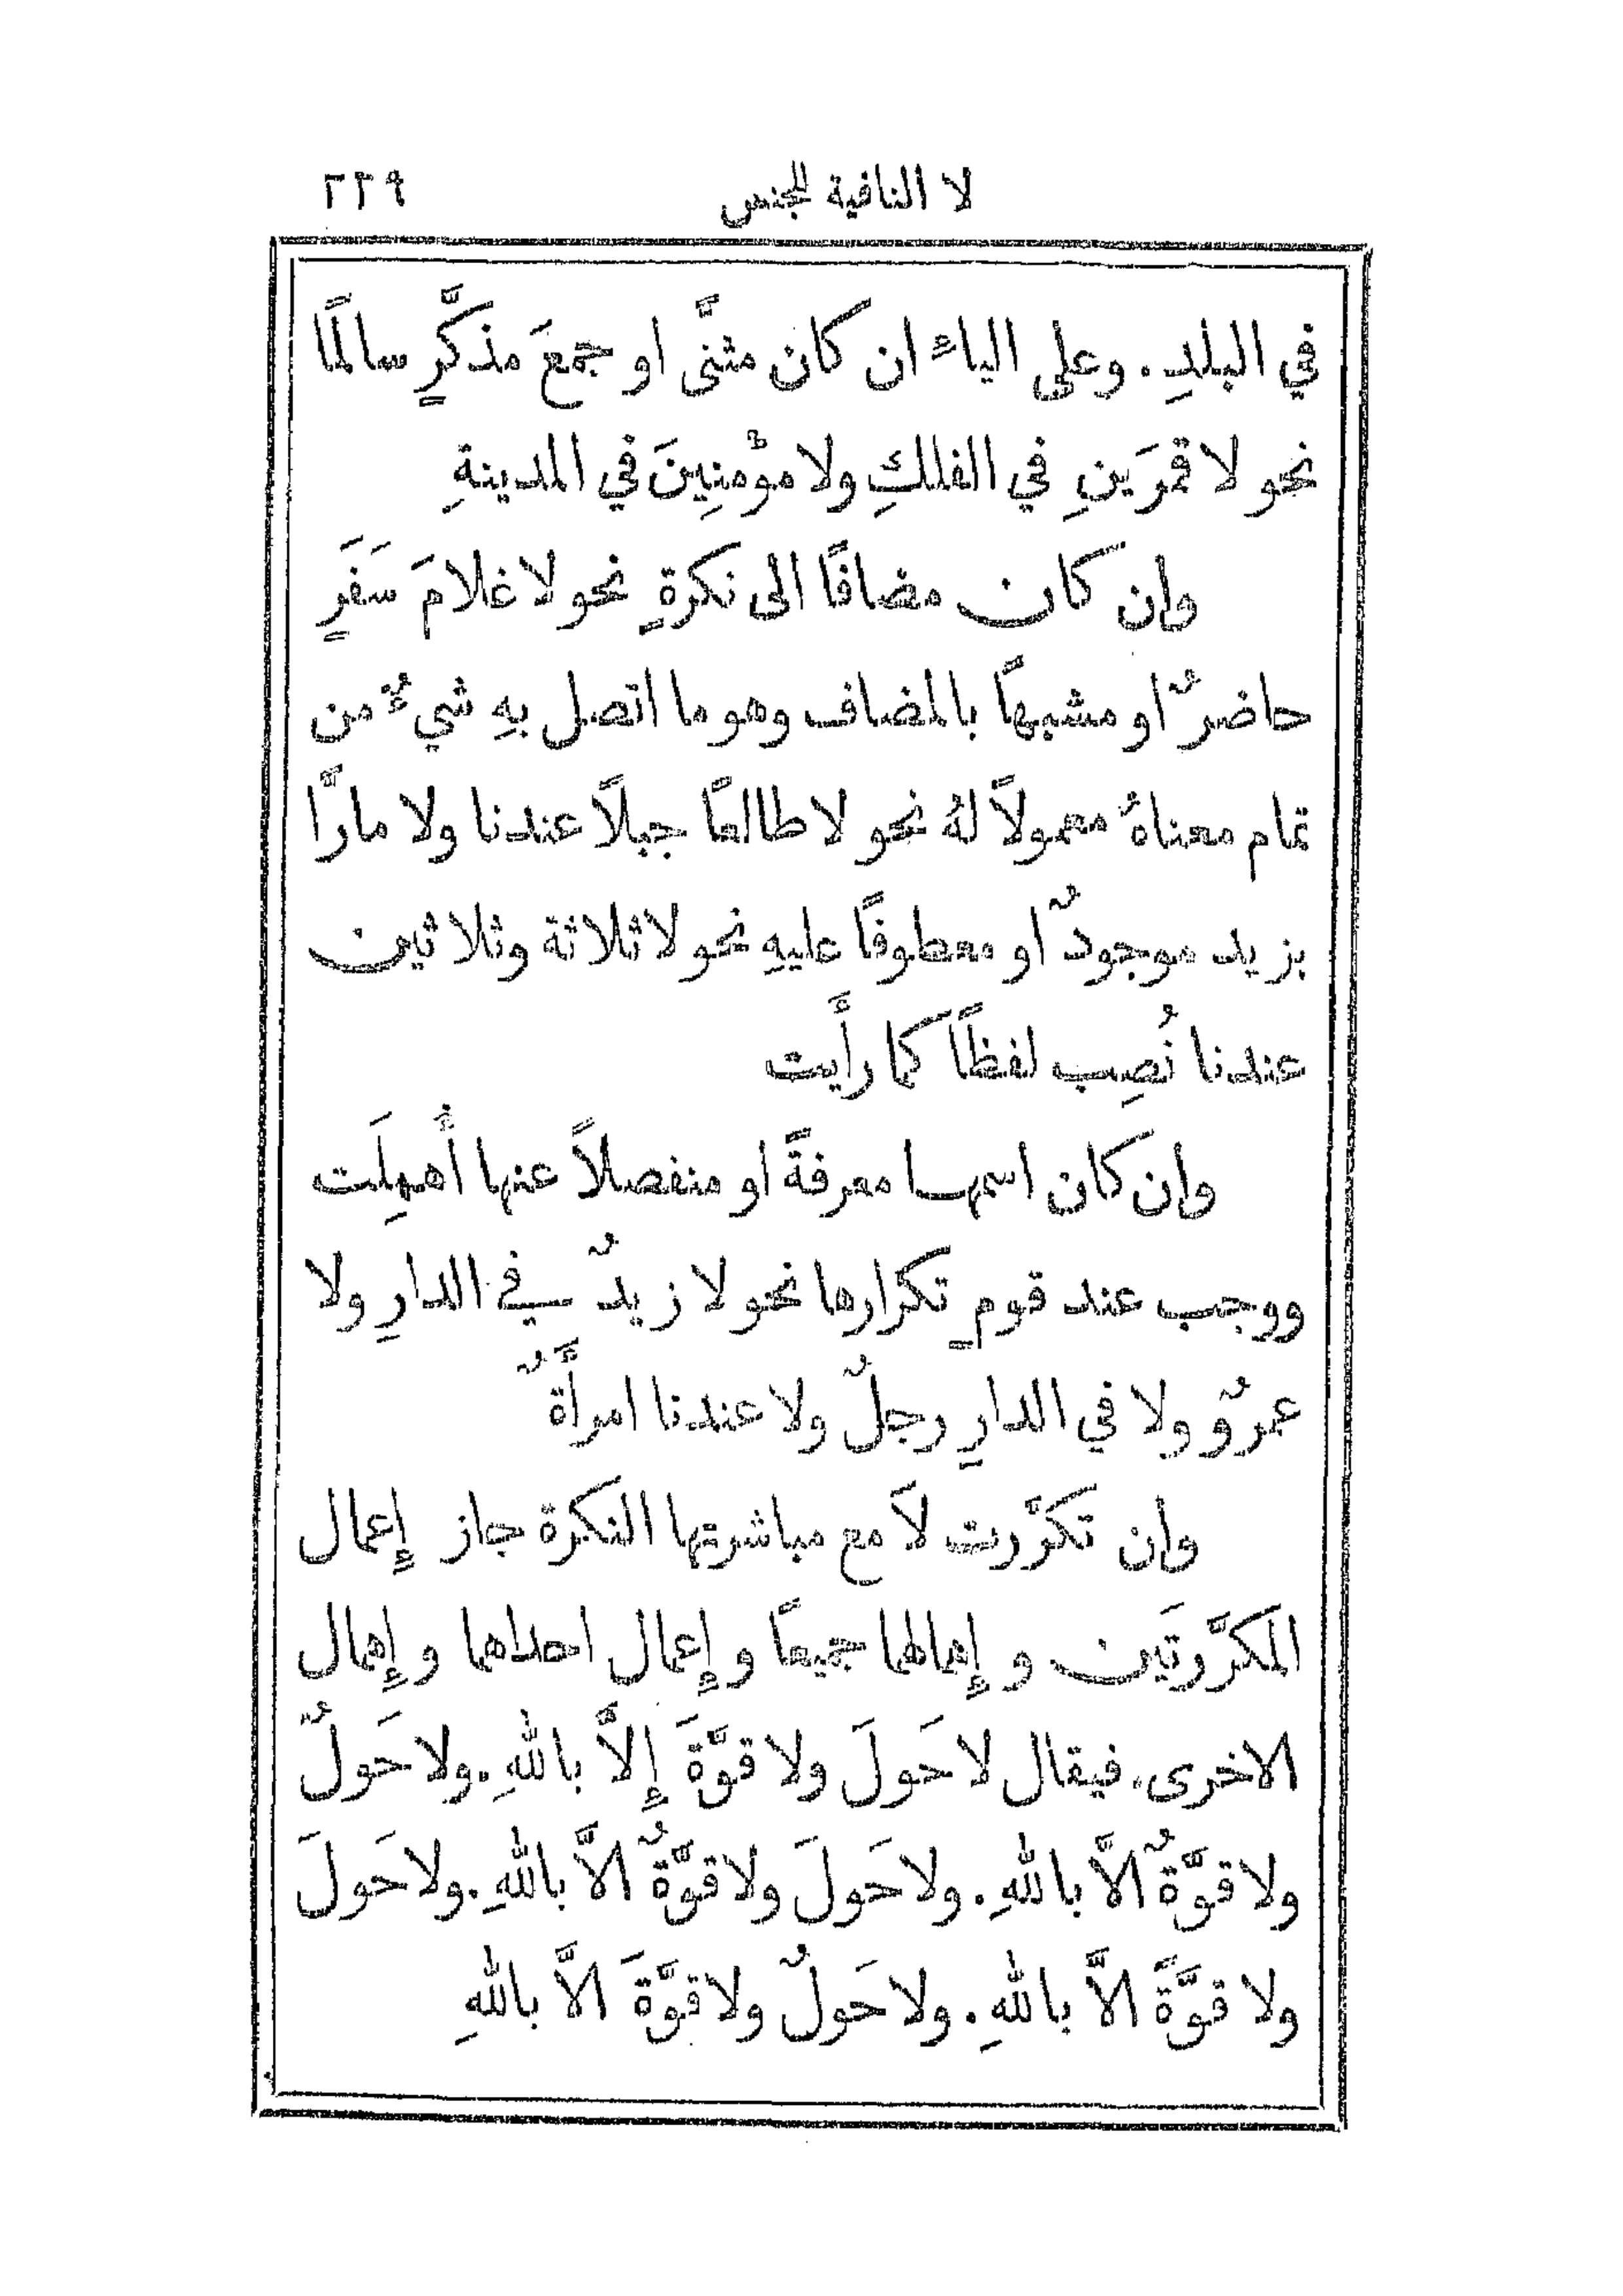 لا النافية للجنس ٢٢٩
في البلدِ. وعلى الياءِ ان كان مثنًّى او جمعَ مذكَّرٍ سالمًا
نحو لا قمرَينِ في الفلكِ ولا مؤْمنِينَ في المدينةِ
وإن كان مضافًا الى نكرةٍ نحو لا غلامَ سَفَرٍ
حاضرٌ او مشبهًا بالمضاف وهو ما اتصل بهِ شيءٌ من
تمام معناهُ معمولاً لهُ نحو لا طالعًا جبلاً عندنا ولا مارًّا
بزيد موجودٌ او معطوفًا عليهِ نحو لا ثلاثة وثلاثين
عندنا نُصِب لفظًا كما رأَيت
وإن كان اسمها معرفةً او منفصلاً عنها أُهمِلَت
ووجب عند قومٍ تكرارها نحو لا زيدٌ في الدارِ ولا
عمرٌو ولا في الدارِ رجلٌ ولا عندنا امرأَةٌ
وإن تكرَّرت لاَ مع مباشرتها النكرة جاز إِعمال
المكرَّرتَين و إِهمالهما جميعًا و إِعمال احداهما و إِهمال
الاخرى. فيقال لا حَولَ ولا قوَّةَ إِلاَّ باللهِ. ولا حَولٌ
ولا قوَّةٌ الاَّ باللهِ. ولا حَولَ ولا قوَّةٌ الاَّ باللهِ. ولا حَولَ
ولا قوَّةً الاَّ باللهِ. ولا حَولٌ ولا قوَّةَ الاَّ باللهِ